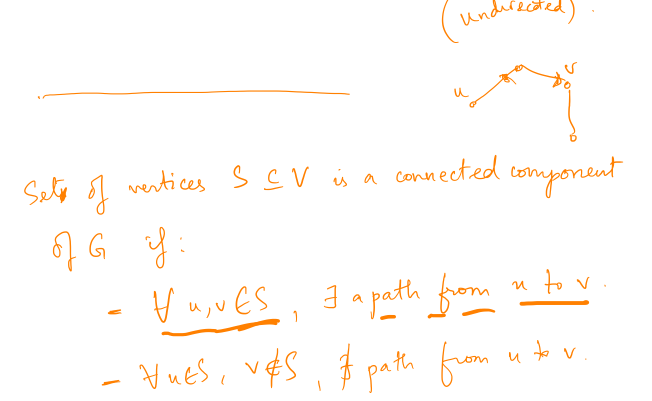 (undirected).
u v
Set of vertices S ⊆ V is a connected component
of G if:
- ∀ u,v ∈ S, ∃ a path from u to v.
- ∀ u ∈ S, v ∉ S, ∄ path from u to v.